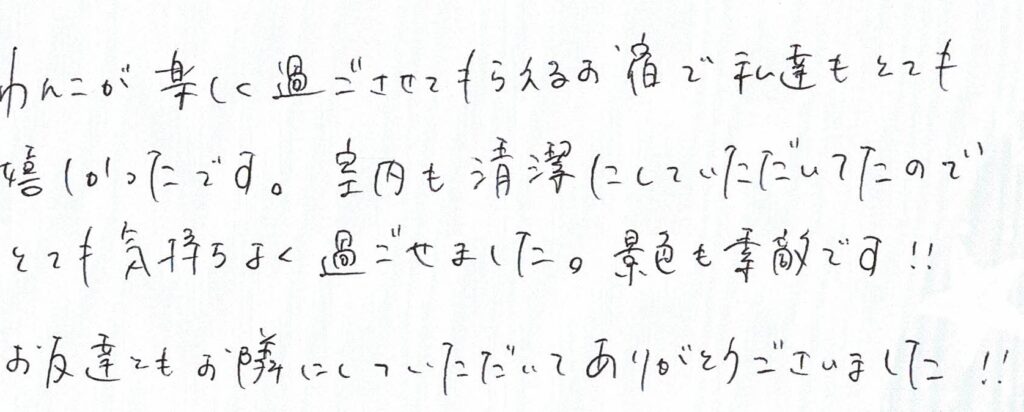 わんこが楽しく過ごさせてもらえるお宿で私達もとても
嬉しかったです。室内も清潔にしていただいてたので
とても気持ちよく過ごせました。景色も素敵です!!
お友達ともお隣にしていただいてありがとうございました!!